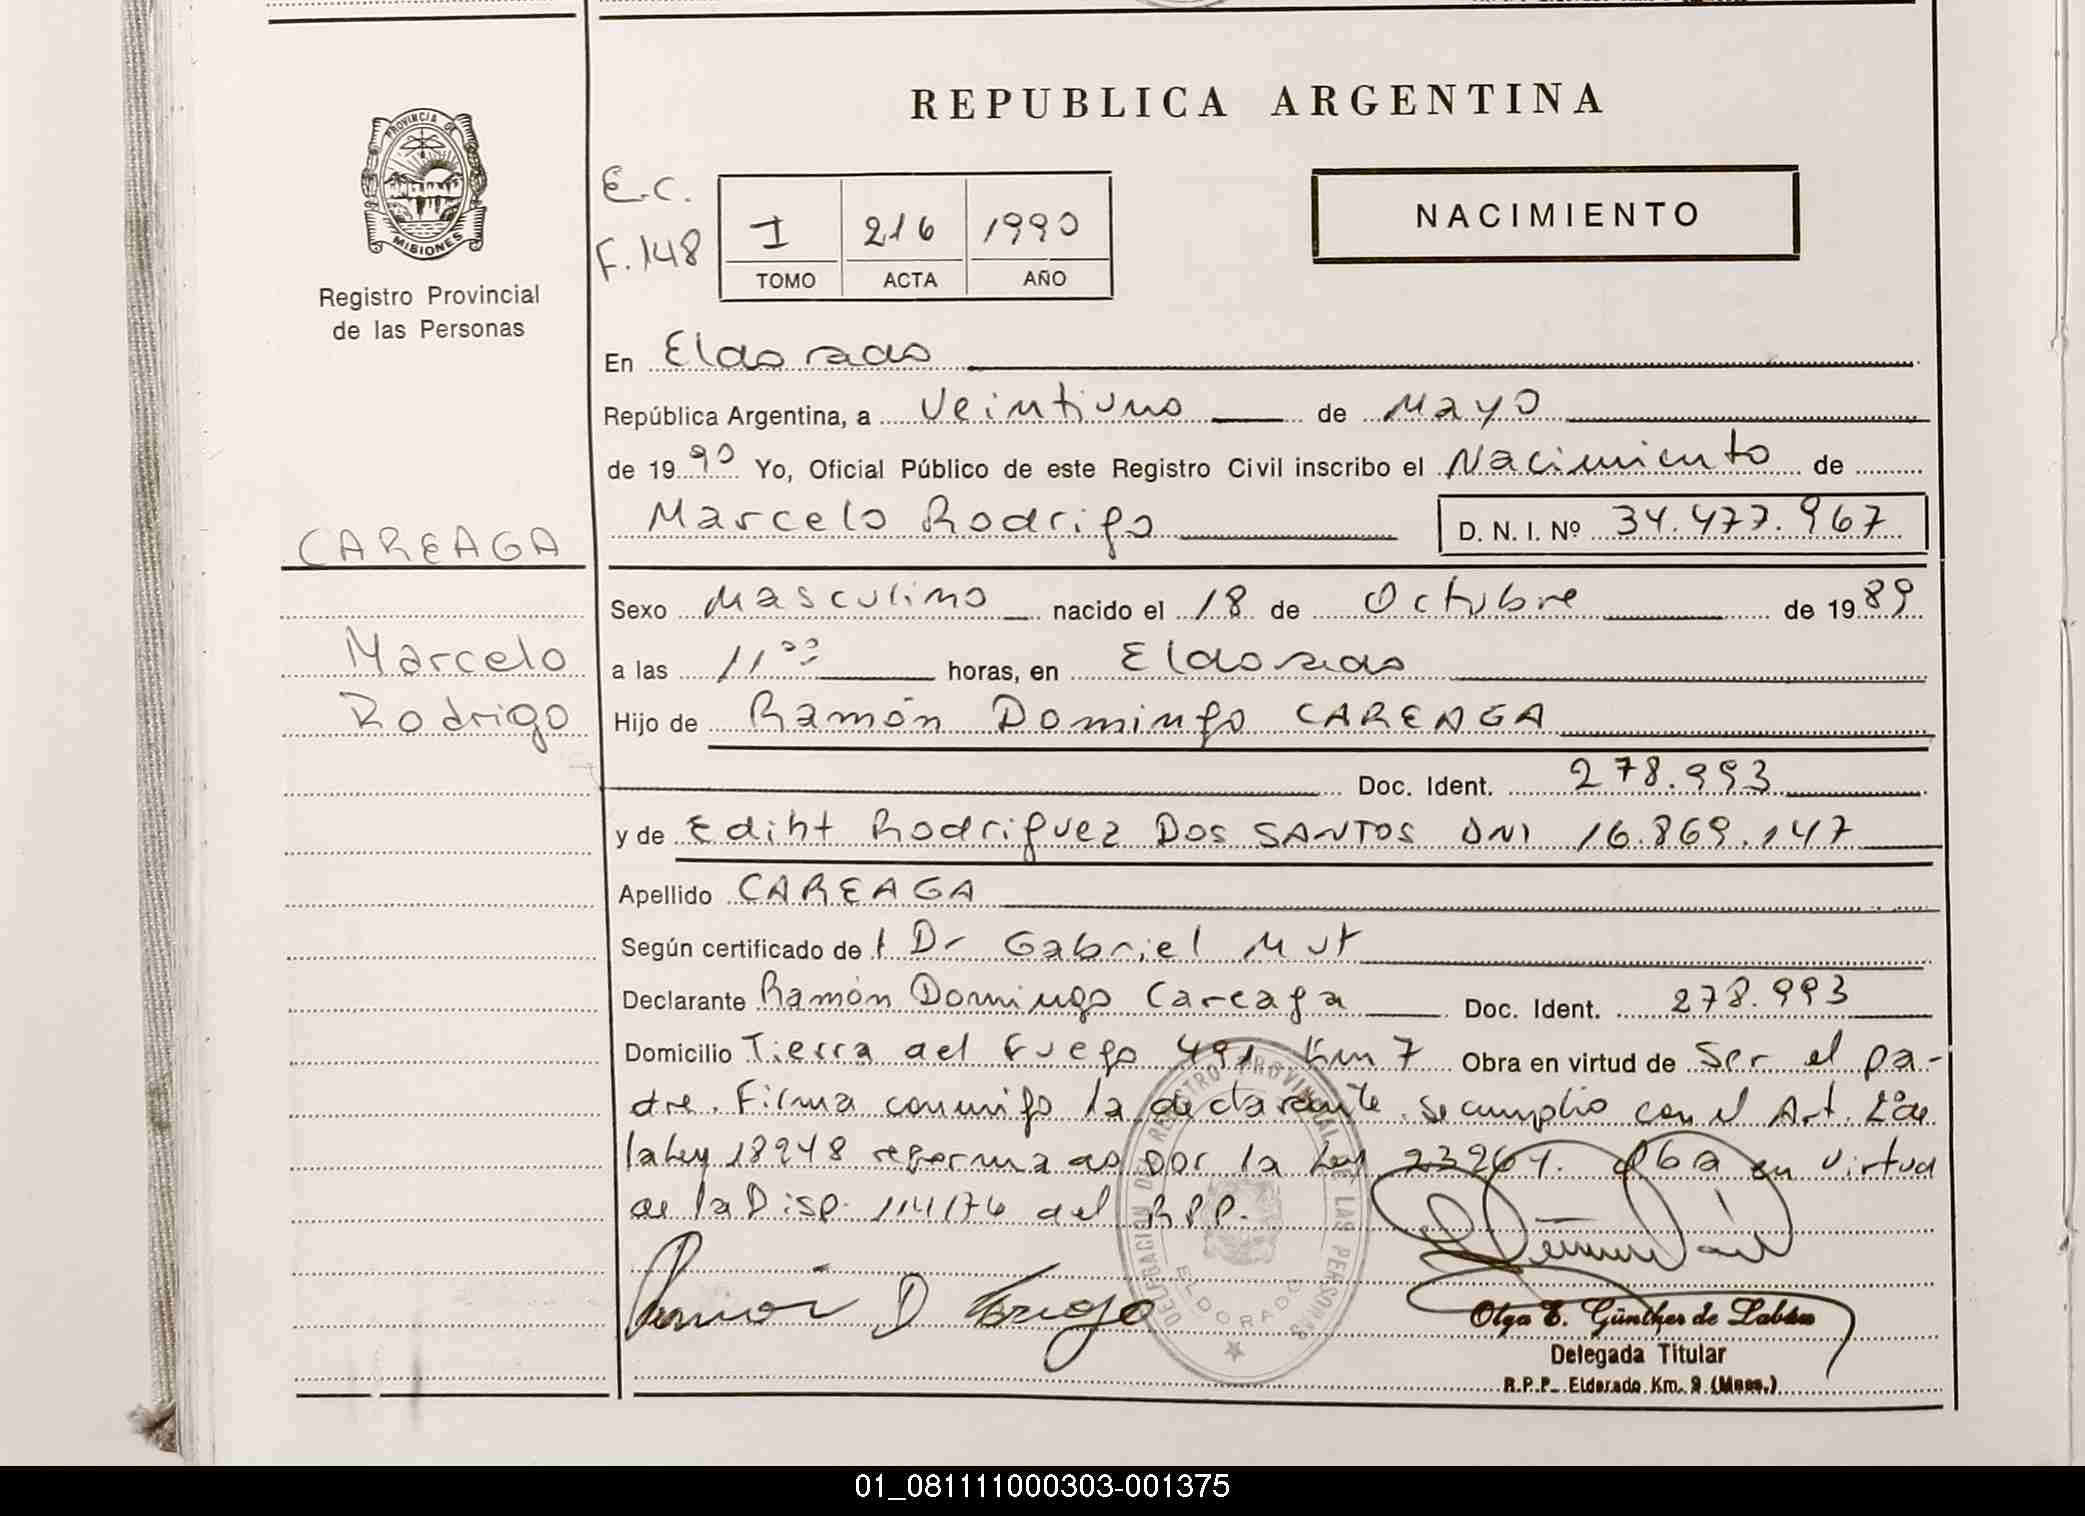 REPUBLICA ARGENTINA
PROVINCIA DE
MISIONES
Registro Provincial
de las Personas
E.C.
F. 148
I 216 1990
TOMO ACTA AÑO
NACIMIENTO
En Eldorado
República Argentina, a Veintiuno de Mayo
de 1990 Yo, Oficial Público de este Registro Civil inscribo el Nacimiento de
Marcelo Rodrigo D. N. I. Nº 34.477.967
CAREAGA
Marcelo
Rodrigo
Sexo Masculino nacido el 18 de Octubre de 1989
a las 11 00 horas, en Eldorado
Hijo de Ramón Domingo CAREAGA
Doc. Ident. 278.993
y de Ediht Rodriguez DOS SANTOS DNI 16.869.147
Apellido CAREAGA
Según certificado de l Dr Gabriel Mut
Declarante Ramón Domingo Careaga Doc. Ident. 278.993
Domicilio Tierra del Fuego 491 Km 7 Obra en virtud de Ser el pa-
dre. Firma conmigo la declarante. Se cumplio con el Art. 2º de
la Ley 18248 reformado por la Ley 23264. Oba en virtud
de la Disp. 114/76 del RPP.
DELEGACION DEL REGISTRO PROVINCIAL DE LAS PERSONAS
ELDORADO
Ramón D
Olga E. Günther de Labán
Delegada Titular
R.P.P. Eldorado Km. 9 (Mnes.)
01_081111000303-001375